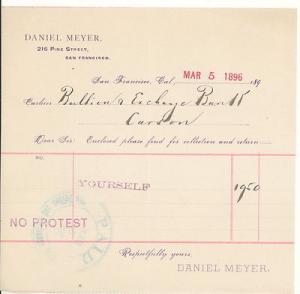 DANIEL MEYER,
216 PINE STREET,
SAN FRANCISCO.
San Francisco, Cal., MAR 5 1896 189
Cashier Bullion & Exchange Bank
Carson
Dear Sir: Enclosed please find for collection and return
NO.
YOURSELF 1950
NO PROTEST
PAID
Respectfully yours,
DANIEL MEYER.